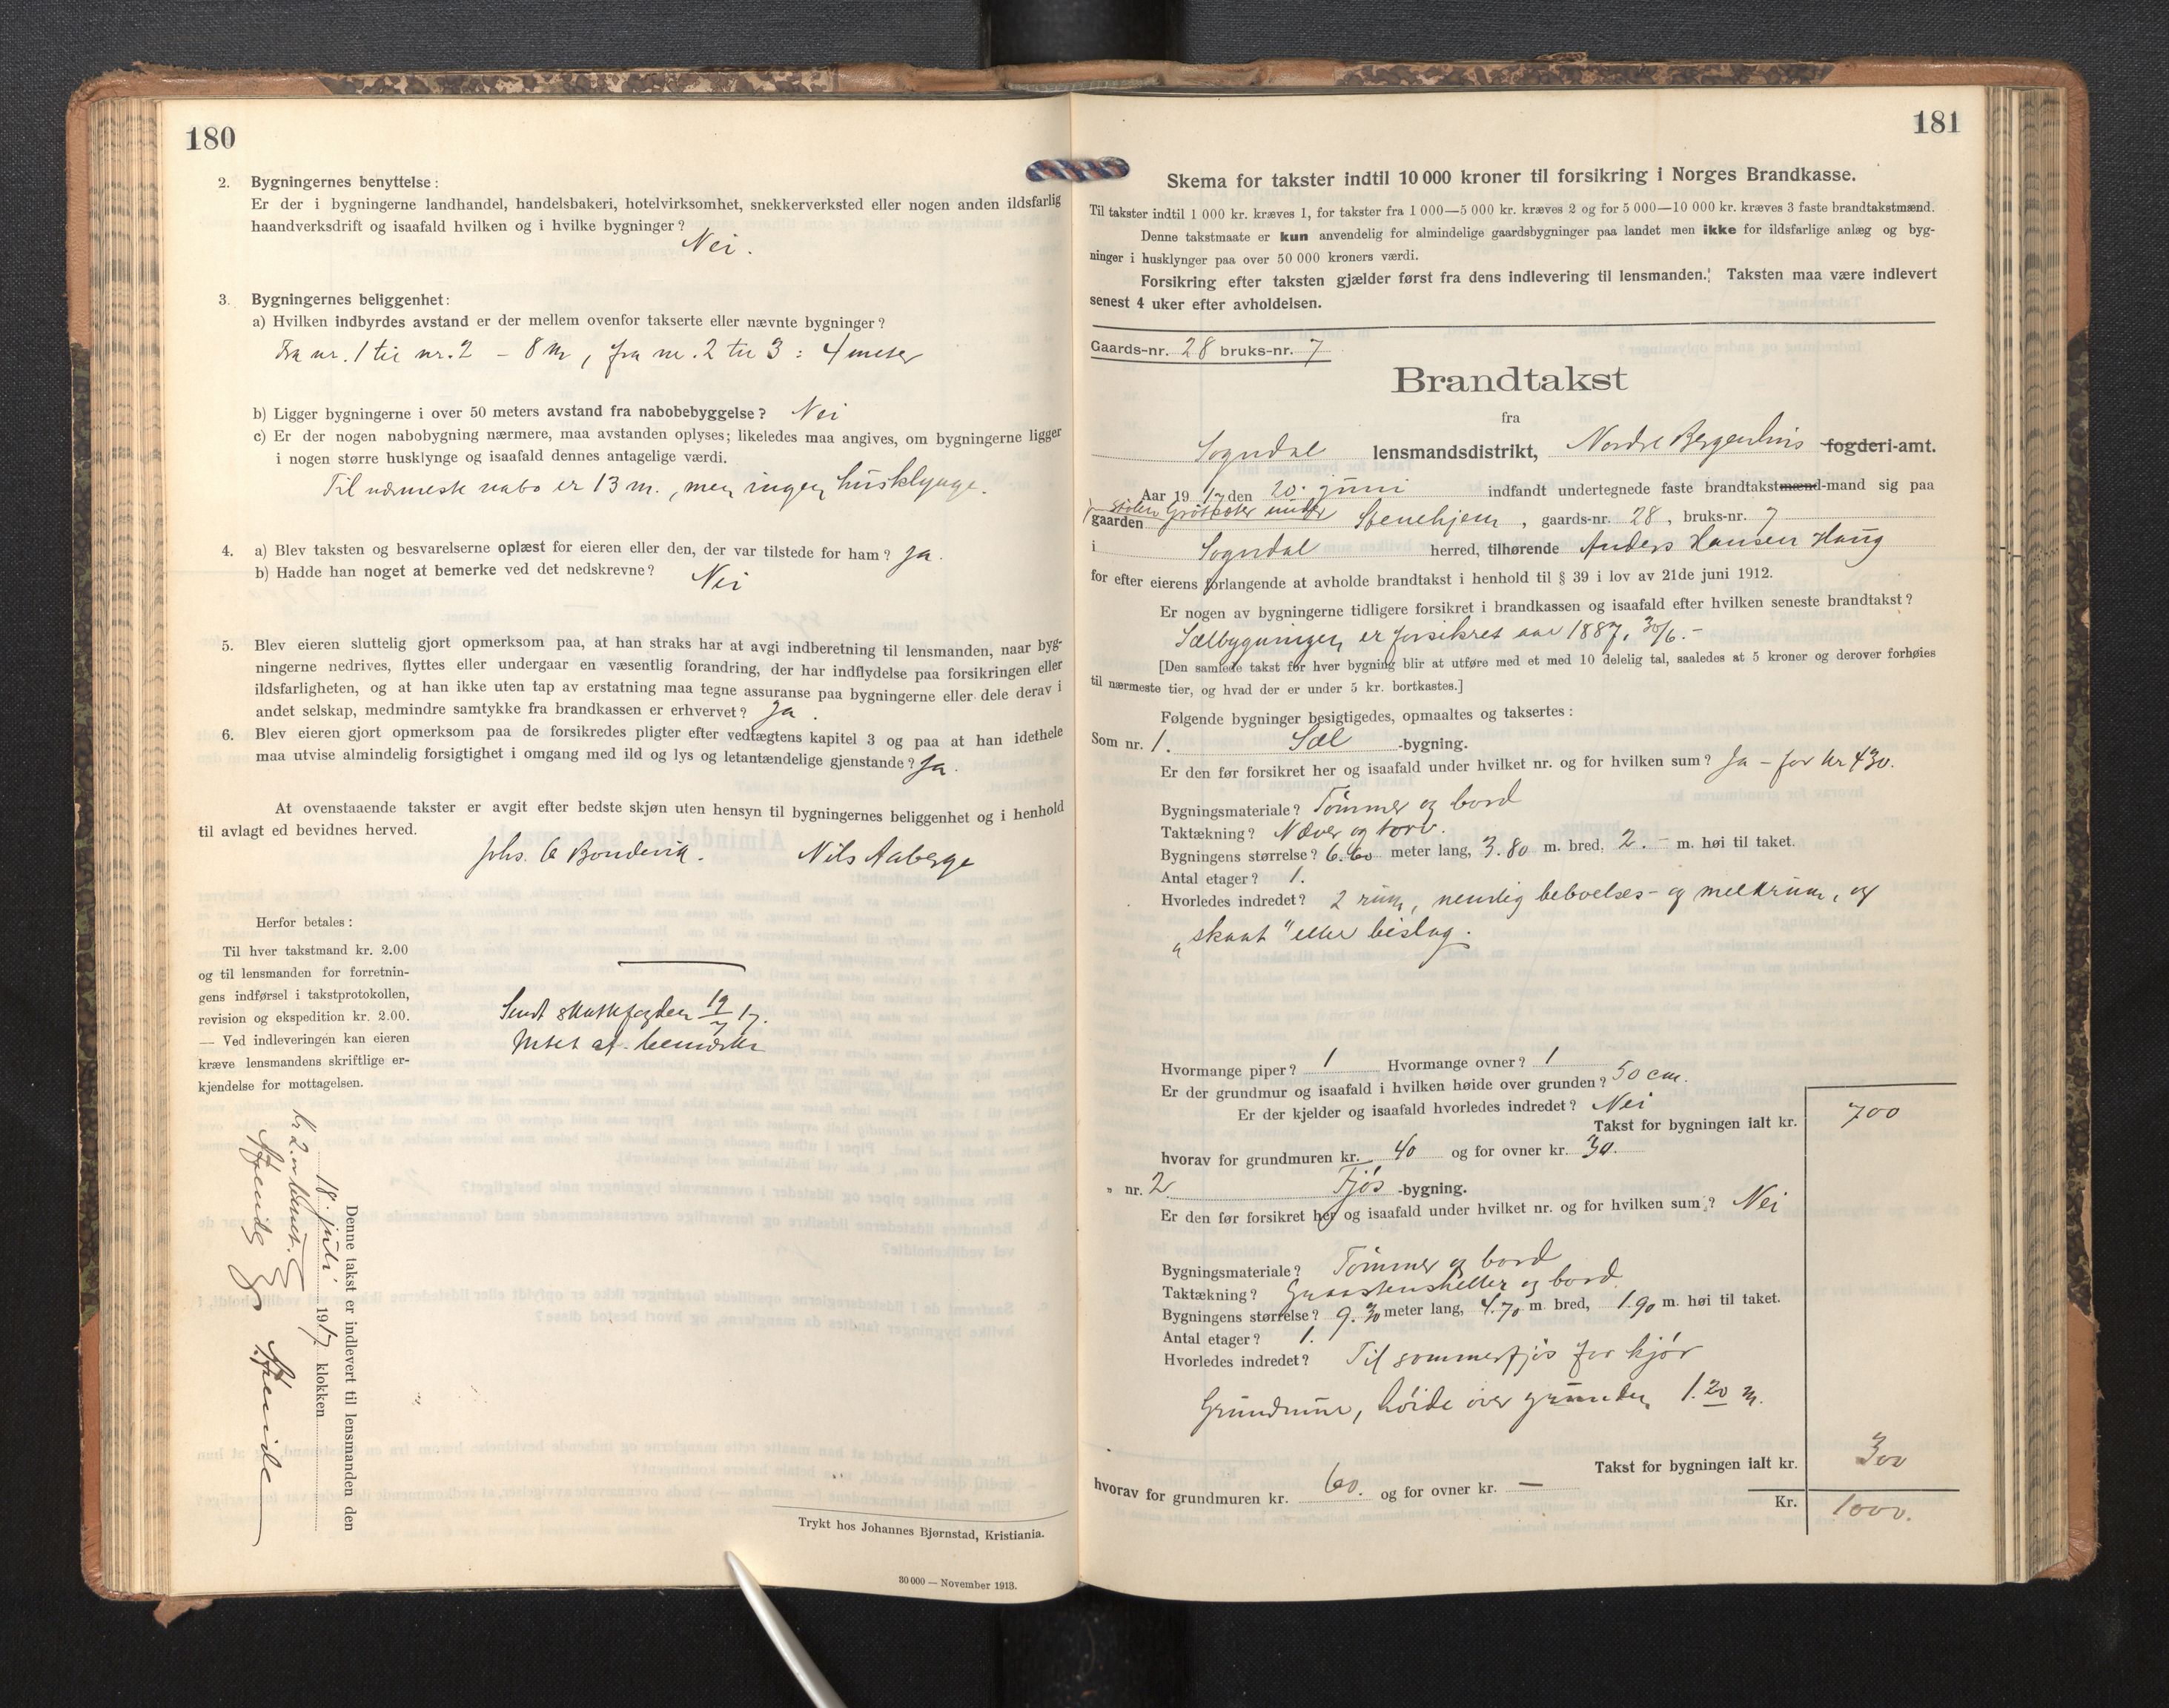 180
2. Bygningernes benyttelse:
Er der i bygningerne landhandel, handelsbakeri, hotelvirksomhet, snekkerverksted eller nogen anden ildsfarlig
haandverksdrift og isaafald hvilken og i hvilke bygninger?
Nei.
3. Bygningernes beliggenhet:
a) Hvilken indbyrdes avstand er der mellem ovenfor takserte eller nævnte bygninger?
Fra nr. 1 til nr. 2 - 8 m, fra nr. 2 til 3: 4 meter
b) Ligger bygningerne i over 50 meters avstand fra nabobebyggelse? Nei
c) Er der nogen nabobygning nærmere, maa avstanden oplyses; likeledes maa angives, om bygningerne ligger
i nogen større husklynge og isaafald dennes antagelige værdi.
Til nærmeste nabo er 13 m., men ingen husklynge.
4. a) Blev taksten og besvarelserne oplæst for eieren eller den, der var tilstede for ham? Ja.
b) Hadde han noget at bemerke ved det nedskrevne? Nei
5. Blev eieren sluttelig gjort opmerksom paa, at han straks har at avgi indberetning til lensmanden, naar byg-
ningerne nedrives, flyttes eller undergaar en væsentlig forandring, der har indflydelse paa forsikringen eller
ildsfarligheten, og at han ikke uten tap av erstatning maa tegne assuranse paa bygningerne eller dele derav i
andet selskap, medmindre samtykke fra brandkassen er erhvervet? Ja.
6. Blev eieren gjort opmerksom paa de forsikredes pligter efter vedtægtens kapitel 3 og paa at han idethele
maa utvise almindelig forsigtighet i omgang med ild og lys og letantændelige gjenstande? Ja.
At ovenstaaende takster er avgit efter bedste skjøn uten hensyn til bygningernes beliggenhet og i henhold
til avlagt ed bevidnes herved.
Johs. O Bondevik. Nils Aaberge
Herfor betales:
Til hver takstmand kr. 2.00
og til lensmanden for forretnin-
gens indførsel i takstprotokollen,
revision og ekspedition kr. 2.00.
— Ved indleveringen kan eieren
kræve lensmandens skriftlige er-
kjendelse for mottagelsen.
Sendt skattefogden 19/7 17.
Intet at bemærke
Denne takst er indlevert til lensmanden den
18. juli 1917 klokken
kr 2.00 betalt.
Trykt hos Johannes Bjørnstad, Kristiania.
30 000 — November 1913.
181
Skema for takster indtil 10 000 kroner til forsikring i Norges Brandkasse.
Til takster indtil 1 000 kr. kræves 1, for takster fra 1 000—5 000 kr. kræves 2 og for 5 000—10 000 kr. kræves 3 faste brandtakstmænd.
Denne takstmaate er kun anvendelig for almindelige gaardsbygninger paa landet men ikke for ildsfarlige anlæg og byg-
ninger i husklynger paa over 50 000 kroners værdi.
Forsikring efter taksten gjælder først fra dens indlevering til lensmanden. Taksten maa være indlevert
senest 4 uker efter avholdelsen.
Gaards-nr. 28 bruks-nr. 7
Brandtakst
fra
Sogndal lensmandsdistrikt, Nordre Bergenhus fogderi-amt.
Aar 1917 den 20. juni indfandt undertegnede faste brandtakstmænd-mand sig paa
stølen under
gaarden Stenehjem, gaards-nr. 28, bruks-nr. 7
i Sogndal herred, tilhørende Anders Hansen Haug
for efter eierens forlangende at avholde brandtakst i henhold til § 39 i lov av 21de juni 1912.
Er nogen av bygningerne tidligere forsikret i brandkassen og isaafald efter hvilken seneste brandtakst?
Sælbygningen er forsikret aar 1887, 30/6. -
[Den samlede takst for hver bygning blir at utføre med et med 10 delelig tal, saaledes at 5 kroner og derover forhøies
til nærmeste tier, og hvad der er under 5 kr. bortkastes.]
Følgende bygninger besigtigedes, opmaaltes og taksertes:
Som nr. 1. Sæl -bygning.
Er den før forsikret her og isaafald under hvilket nr. og for hvilken sum? Ja - for kr 430.
Bygningsmateriale? Tømmer og bord
Taktækning? Næver og torv.
Bygningens størrelse? 6.60 meter lang, 3.80 m. bred, 2. - m. høi til taket.
Antal etager? 1.
Hvorledes indredet? 2 rum, nemlig beboelses- og melkrum, og
"skaat" eller bislag.
Hvormange piper? 1 Hvormange ovner? 1
Er der grundmur og isaafald i hvilken høide over grunden? 50 cm.
Er der kjelder og isaafald hvorledes indredet? Nei
Takst for bygningen ialt kr. 700
hvorav for grundmuren kr. 40 og for ovner kr. 30.
" nr. 2 Fjøs -bygning.
Er den før forsikret her og isaafald under hvilket nr. og for hvilken sum? Nei
Bygningsmateriale? Tømmer og bord
Taktækning? Graastensheller og bord
Bygningens størrelse? 9.30 meter lang, 4.70 m. bred, 1.90 m. høi til taket.
Antal etager? 1.
Hvorledes indredet? Til sommerfjøs for kjør
Grundmur, høide over grunden 1.20 m.
Takst for bygningen ialt kr. 300
hvorav for grundmuren kr. 60. og for ovner kr. —
Kr. 1000.